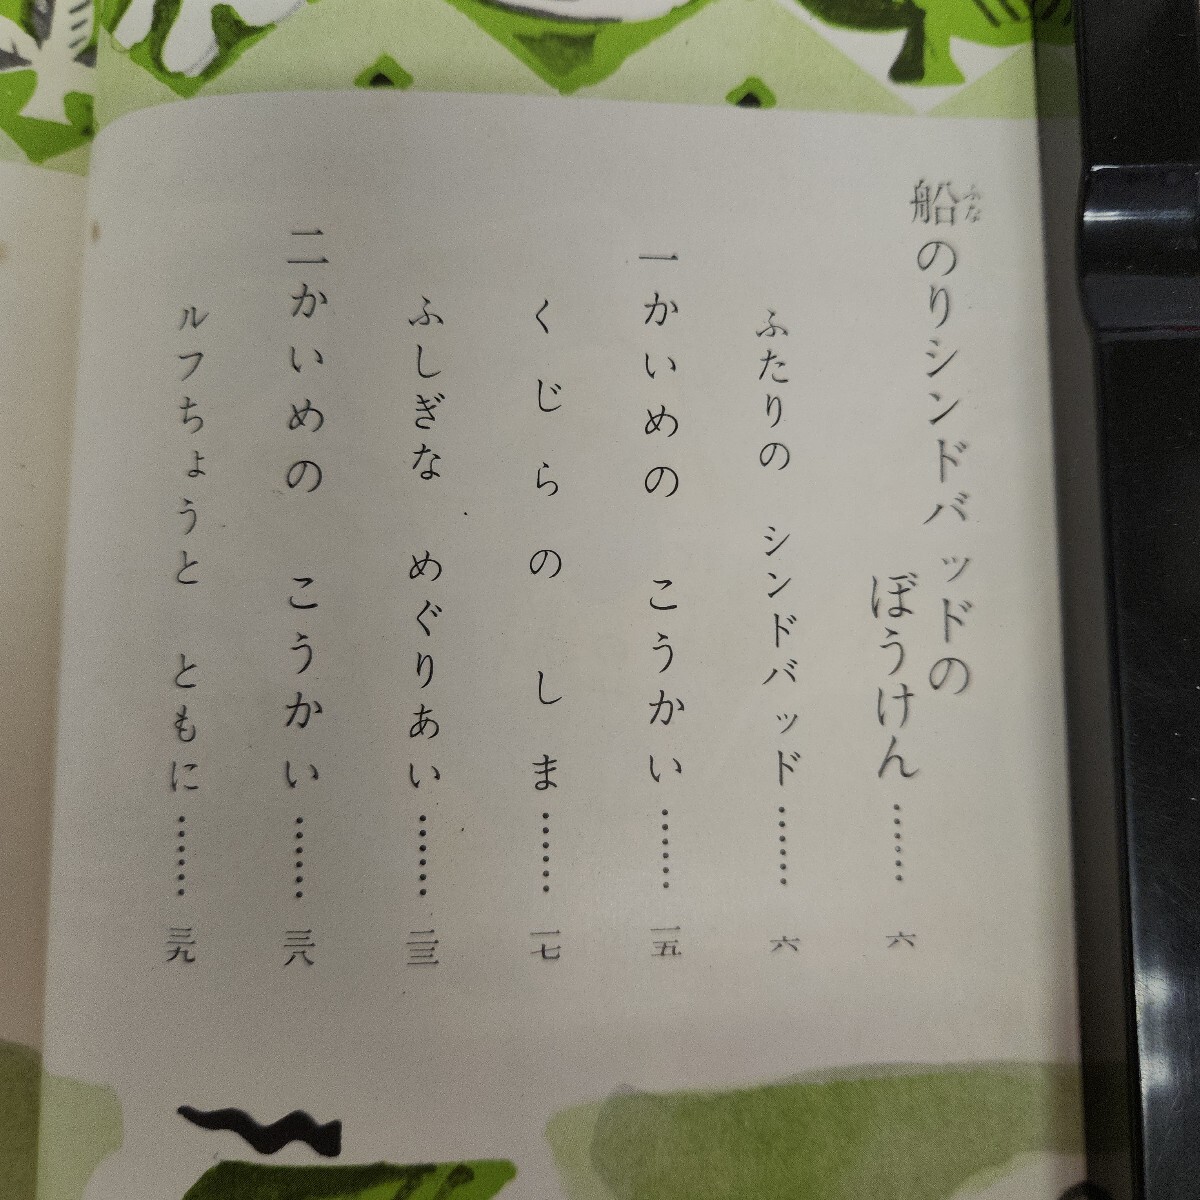 船のりシンドバッドの
ふな
ぼうけん……六
ふたりの シンドバッド……六
一かいめの こうかい……一五
くじらの しま……一七
ふしぎな めぐりあい……二三
二かいめの こうかい……三八
ルフちょうと ともに……三九